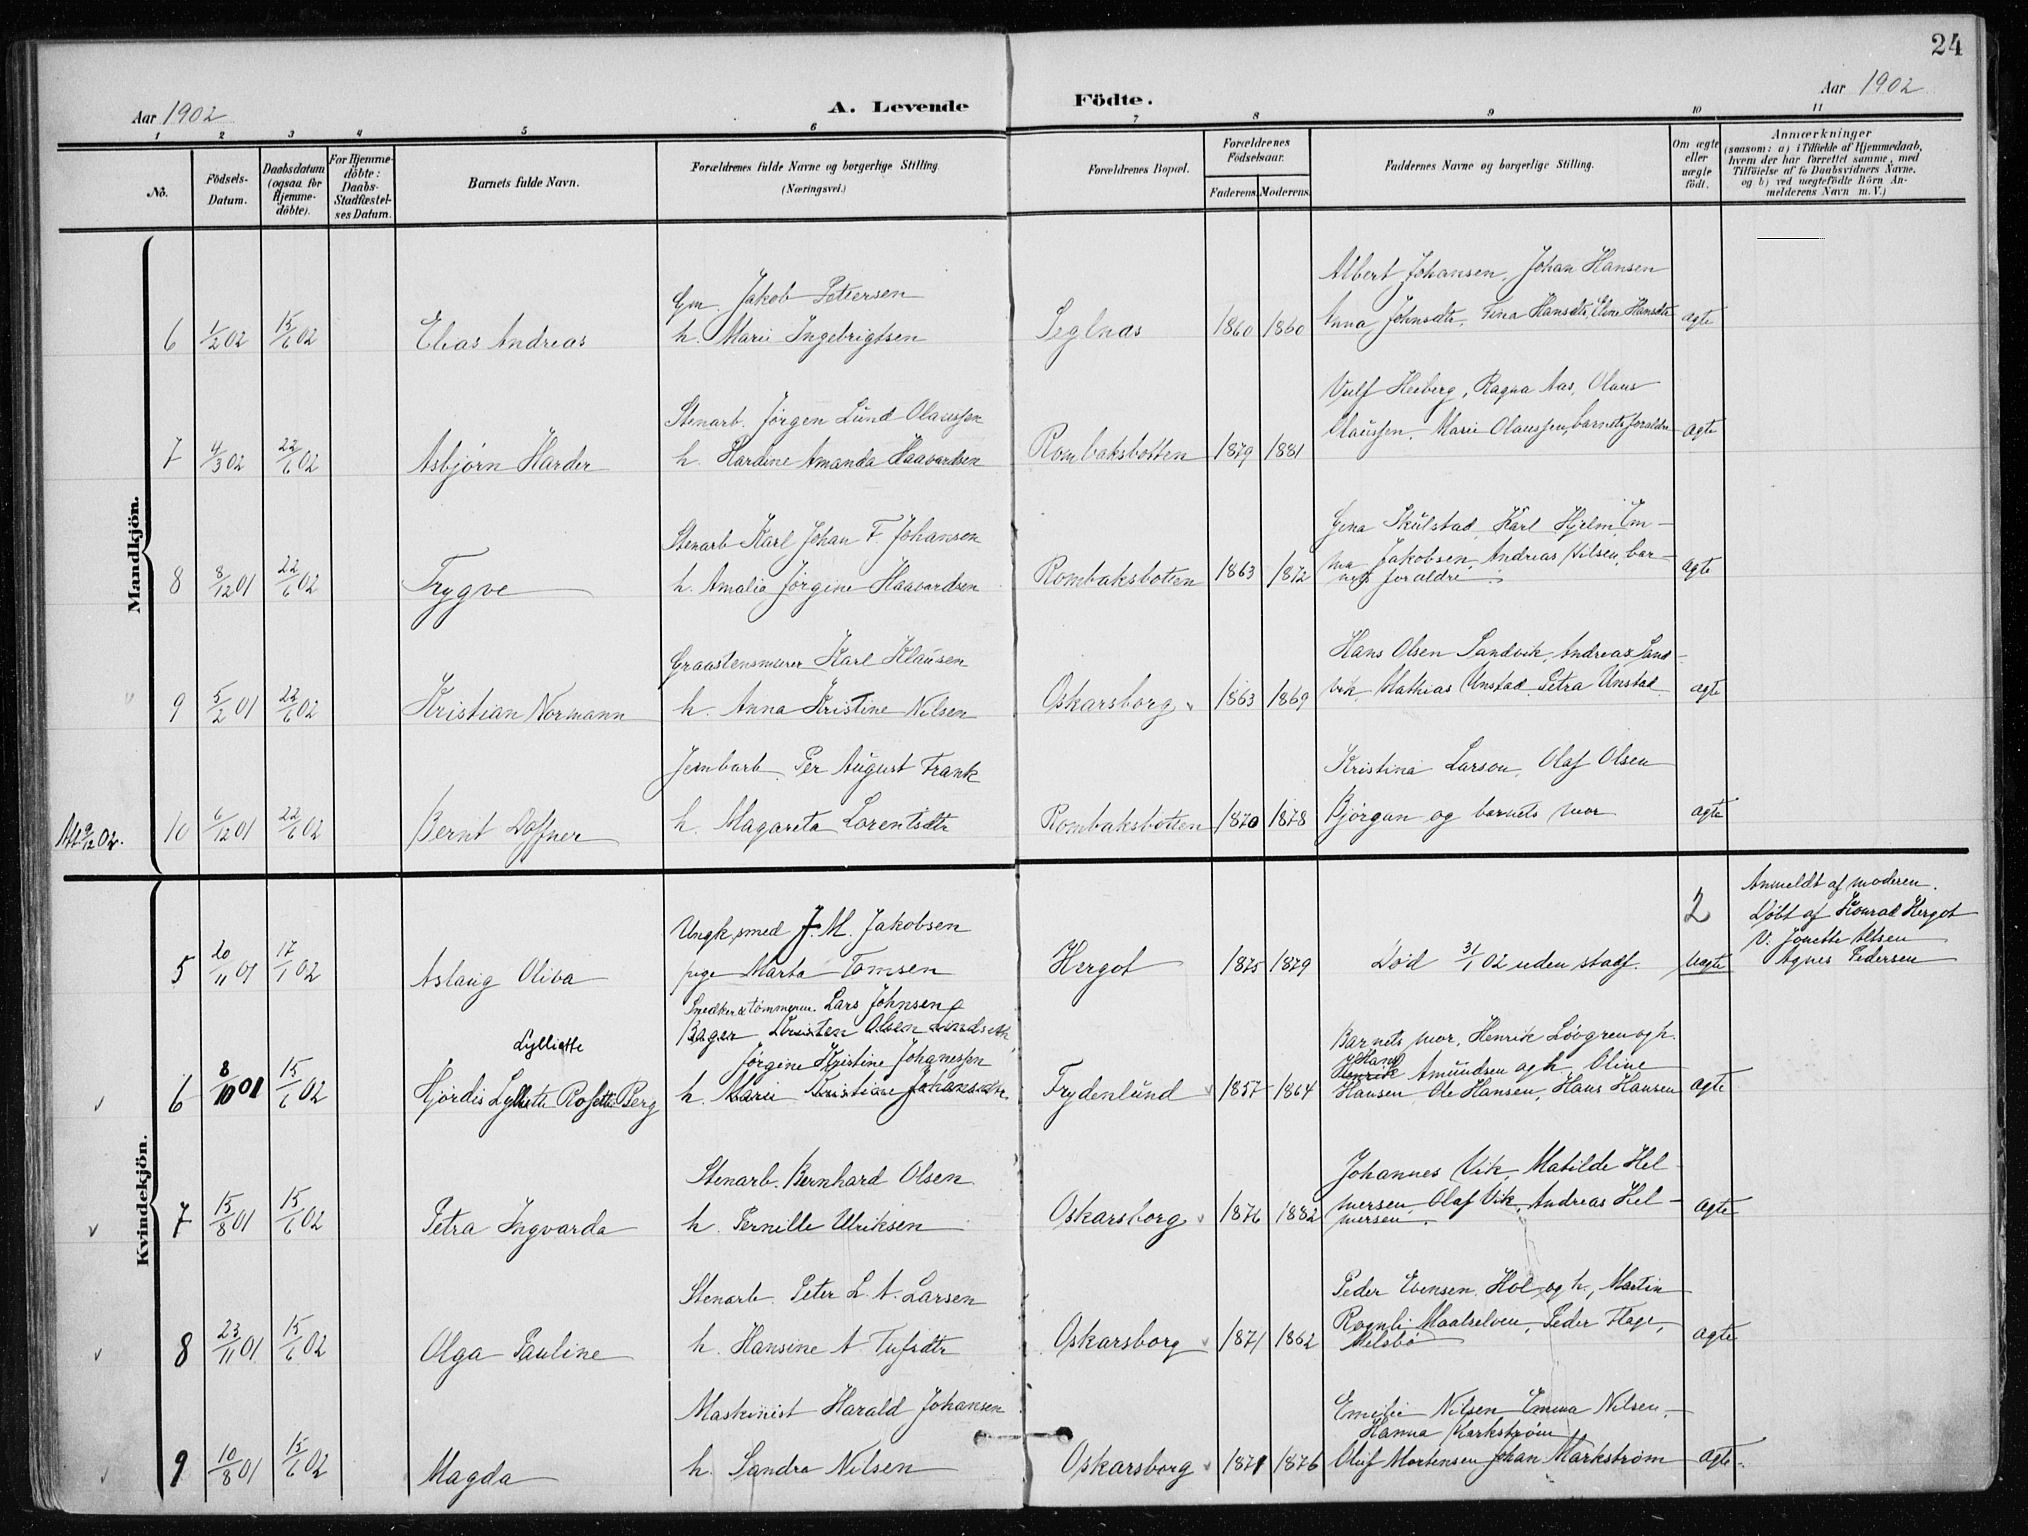 24
Aar 1902
A. Levende Födte.
Aar 1902
1 2 3 4 5 6 7 8 9 10 11
No.
Födsels-Datum.
Daabsdatum (ogsaa for Hjemme-döbte).
For Hjemme-döbte: Daabs-Stadfæstel-ses Datum.
Barnets fulde Navn.
Forældrenes fulde Navne og borgerlige Stilling.
(Næringsvei.)
Forældrenes Bopæl.
Forældrenes Födselsaar.
Faderens. Moderens.
Faddernes Navne og borgerlige Stilling.
Om ægte eller uægte födt.
Anmærkninger
(saasom: a) i Tilfælde af Hjemmedaab,
hvem der har forrettet samme, med
Tilföielse af to Daabsvidners Navne.
og b) ved uægtefödte Börn An-
melderens Navn m. V.)
Mandkjön.
Albert Johansen, Johan Hansen
Gm. Jakob Pettersen
6 1/2 02 15/6 02 Elias Andreas h. Marie Ingebrigtsen Seglnæs 1860 1860 Anna Johnsdtr, Tina Hansdtr, Eline Hansdtr ægte
Heiberg, Ragna Aas, Olaus
Stenarb. Jørgen Lund Olaussen
7 4/3 02 22/6 02 Asbjørn Harder h. Hardine Amanda Haavardsen Rombaksbotten 1879 1881 Olaussen, Marie Olaussen, barnets forældre ægte
Gina Skulstad, Karl Hjelm, Em-
Stenarb Karl Johan F Johansen
8 8/12 01 22/6 02 Trygve h. Amalia Jörgine Haavardsen Rombaksbotten 1863 1872 ma Jakobsen, Andreas Nilsen, bar-
nets forældre ægte
Hans Olsen Sandvik, Andreas Sand-
Graastensmurer Karl Klausen
9 5/2 01 22/6 02 Kristian Normann h. Anna Kristine Nilsen Oskarsborg 1863 1869 vik, Mathias Unstad, Petra Unstad ægte
Jernbarb. Per August Frank
Kristina Larson, Olaf Olsen
10 6/12 01 22/6 02 Bernt Doffner h. Magareta Lorentsdtr Rombaksbotten 1870 1878 Bjørgan og barnets mor ægte
Kvindekjön.
Anmeldt af moderen.
Døbt af Konrad Hergot
V. Jonette Olsen
Agnes Pedersen
2
Ungk. smed J. M. Jakobsen
5 20/11 01 17/1 02 Aslaug Oliva pige Marta Tomsen Hergot 1875 1879 Død 31/1 02 uden stadf. uægte
Snedker & tømmerm. Lars Johnsen
Bager Kristen Olsen Lindseth
Lylliette
Jørgine Kristine Johanessen
Barnets mor, Henrik Løvgren og h.
Hans
Henrik Amundsen og h. Oline
6 8/10 01 15/6 02 Hjördis Lylliette Rosette Berg h. Marie Kristine Johansdtr. Frydenlund 1857 1864 Hansen, Ole Hansen, Hans Hansen ægte
Stenarb. Bernhard Olsen
Johannes Vik, Matilde Hel-
7 15/8 01 15/6 02 Petra Ingvarda h. Pernille Ulriksen Oskarsborg 1876 1882 mersen, Olaf Vik, Andreas Hel-
mersen. ægte
Stenarb. Peter L. A. Larsen
Peder Evensen Hol og h., Martin
8 23/11 01 15/6 02 Olga Pauline h. Hansine A Tufsdtr Oskarsborg 1871 1862 Rognli Maalselven, Peder Flage,
Melsbö ægte
Maskinist Harald Johansen
Emilie Nilsen Emma Nilsen,
Hanna Markstrøm
9 10/8 01 15/6 02 Magda h. Sandra Nilsen Oskarsborg 1871 1876 Oluf Mortensen Johan Markstrøm ægte